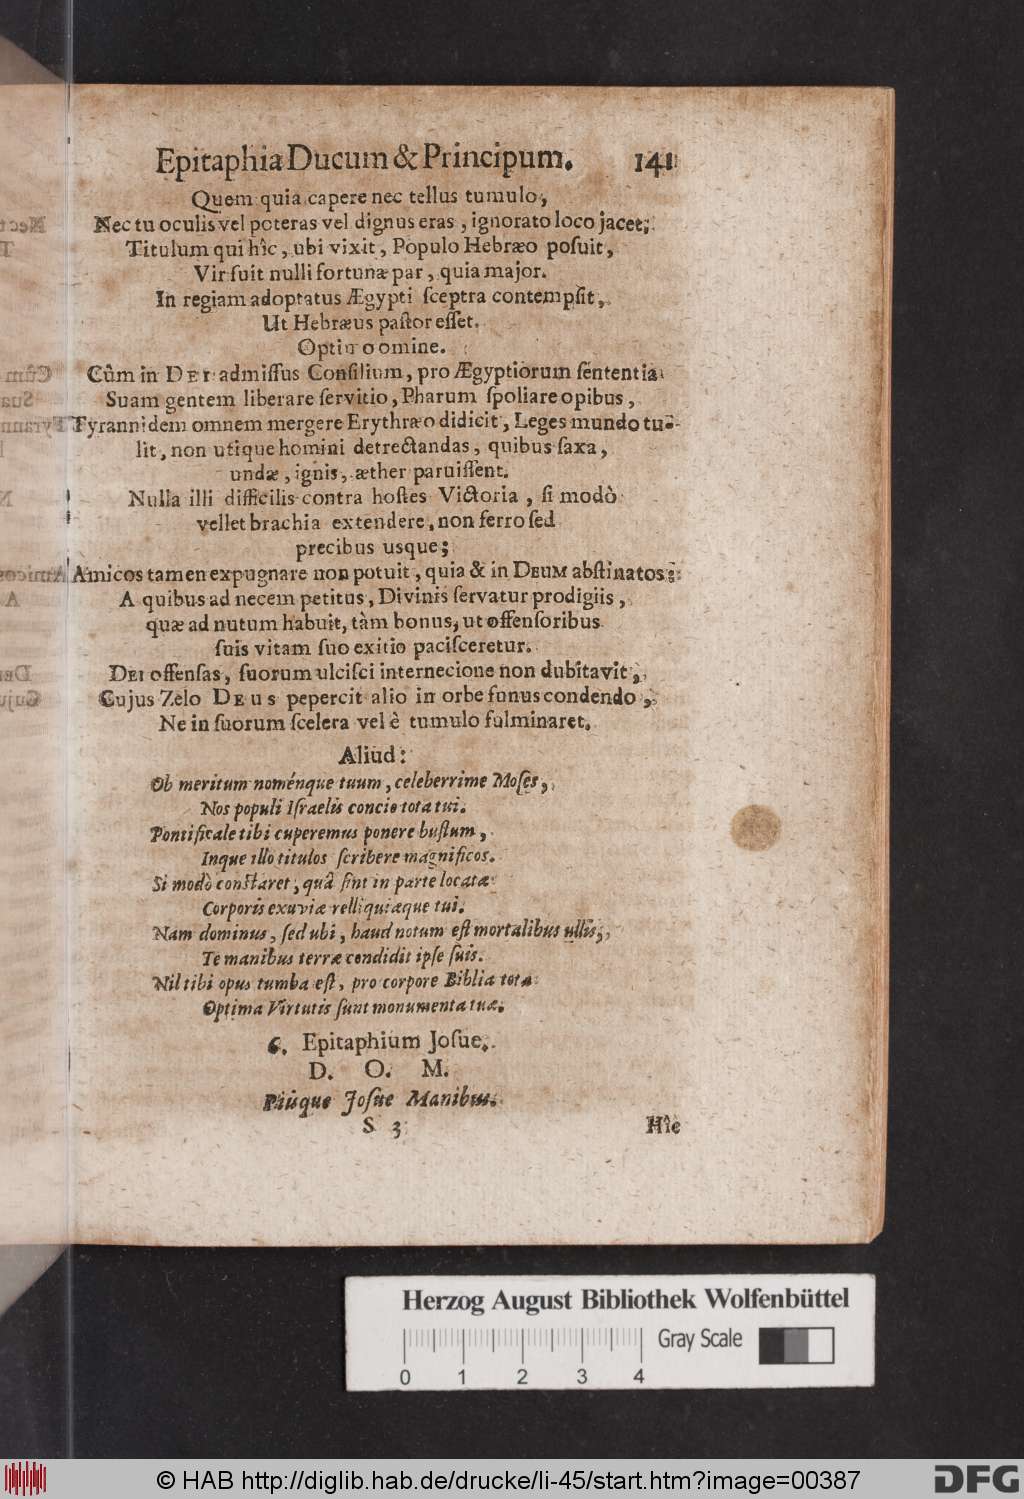 Epitaphia Ducum & Principum. 141
Quem quia capere nec tellus tumulo,
Nec tu oculis vel poteras vel dignus eras, ignorato loco jacet;
Titulum qui hîc, ubi vixit, Populo Hebræo posuit,
Vir fuit nulli fortunæ par, quia major.
In regiam adoptatus Ægypti sceptra contempsit,
Ut Hebræus pastor esset.
Optimo omine.
Cûm in DEI admissus Consilium, pro Ægyptiorum sententia
Suam gentem liberare servitio, Pharum spoliare opibus,
Tyrannidem omnem mergere Erythræo didicit, Leges mundo tu-
lit, non utique homini detrectandas, quibus saxa,
undæ, ignis, æther paruissent.
Nulla illi difficilis contra hostes Victoria, si modò
vellet brachia extendere, non ferro sed
precibus usque;
Amicos tamen expugnare non potuit, quia & in DEUM abstinatos:
A quibus ad necem petitus, Divinis servatur prodigiis,
quæ ad nutum habuit, tàm bonus, ut offensoribus
suis vitam suo exitio pacisceretur.
DEI offensas, suorum ulcisci internecione non dubitavit,
Cujus Zelo DEUS pepercit alio in orbe funus condendo,
Ne in suorum scelera vel è tumulo fulminaret.
Aliud:
Ob meritum noménque tuum, celeberrime Moses,
Nos populi Israelis concio tota tui.
Pontificale tibi cuperemus ponere bustum,
Inque illo titulos scribere magnificos.
Si modò constaret, quâ sint in parte locatæ
Corporis exuviæ relliquiæque tui.
Nam dominus, sed ubi, haud notum est mortalibus ullis,
Te manibus terræ condidit ipse suis.
Nil tibi opus tumba est, pro corpore Biblia tota
Optima Virtutis sunt monumenta tuæ.
6. Epitaphium Josue.
D. O. M.
Piúque Josue Manibus.
S 3
Hîc
Herzog August Bibliothek Wolfenbüttel
Gray Scale
0 1 2 3 4
© HAB http://diglib.hab.de/drucke/li-45/start.htm?image=00387
DFG